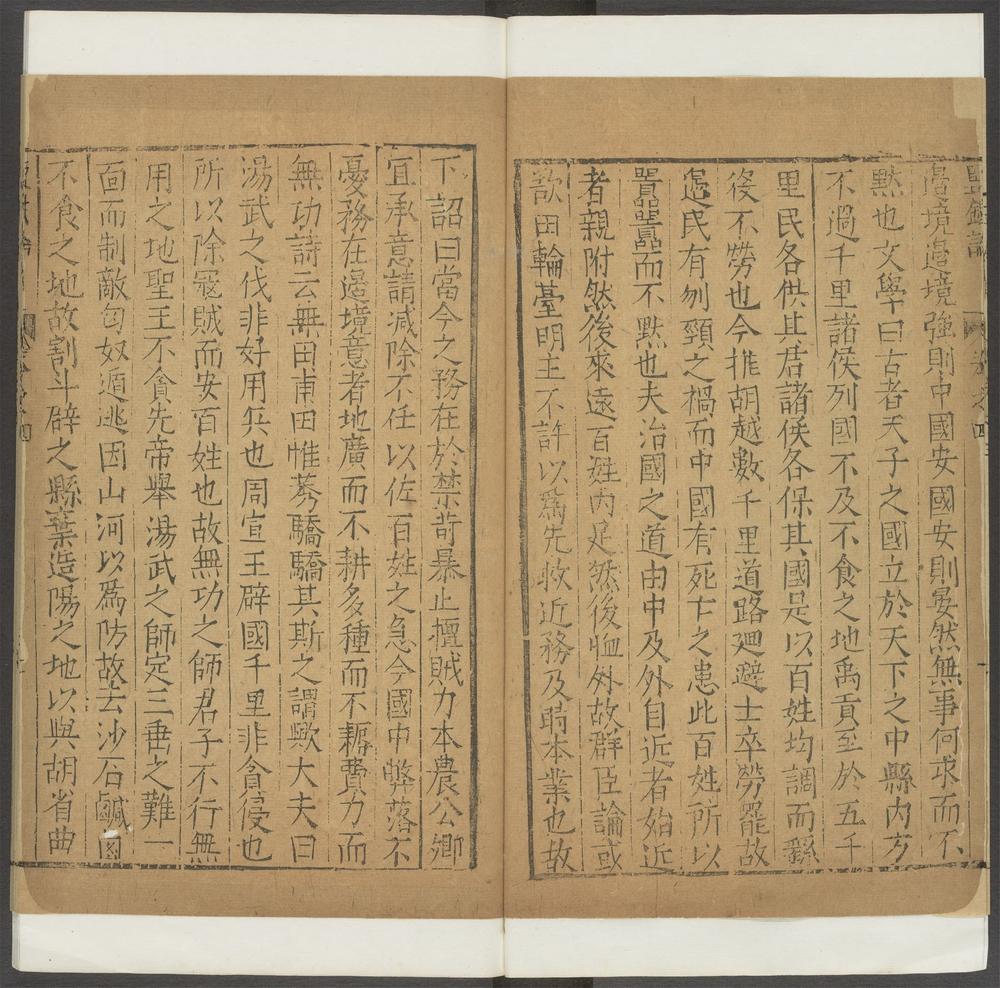 邉境邉境強則中國安國安則晏然無事何求而不
黙也文學曰古者天子之國立於天下之中縣内方
不過千里諸侯列國不及不食之地禹貢至於五千
里民各供其君諸侯各保其國是以百姓均調而繇
役不勞也今推胡越數千里道路廻避士卒勞罷故
邉民有刎頸之禍而中國有死亡之患此百姓所以
囂囂而不黙也夫治國之道由中及外自近者始近
者親附然後來遠百姓内足然後恤外故群臣論或
欲田輪臺明主不許以爲先救近務及時本業也故
下詔曰當今之務在於禁苛暴止擅賊力本農公卿
宜承意請減除不任以佐百姓之急今國中弊落不
憂務在邉境意者地廣而不耕多種而不耨費力而
無功詩云無田甫田惟莠驕驕其斯之謂歟大夫曰
湯武之伐非好用兵也周宣王辟國千里非貪侵也
所以除寇賊而安百姓也故無功之師君子不行無
用之地聖王不貪先帝舉湯武之師定三垂之難一
面而制敵匈奴遁逃因山河以爲防故去沙石鹹鹵
不食之地故割斗辟之縣棄造陽之地以與胡省曲